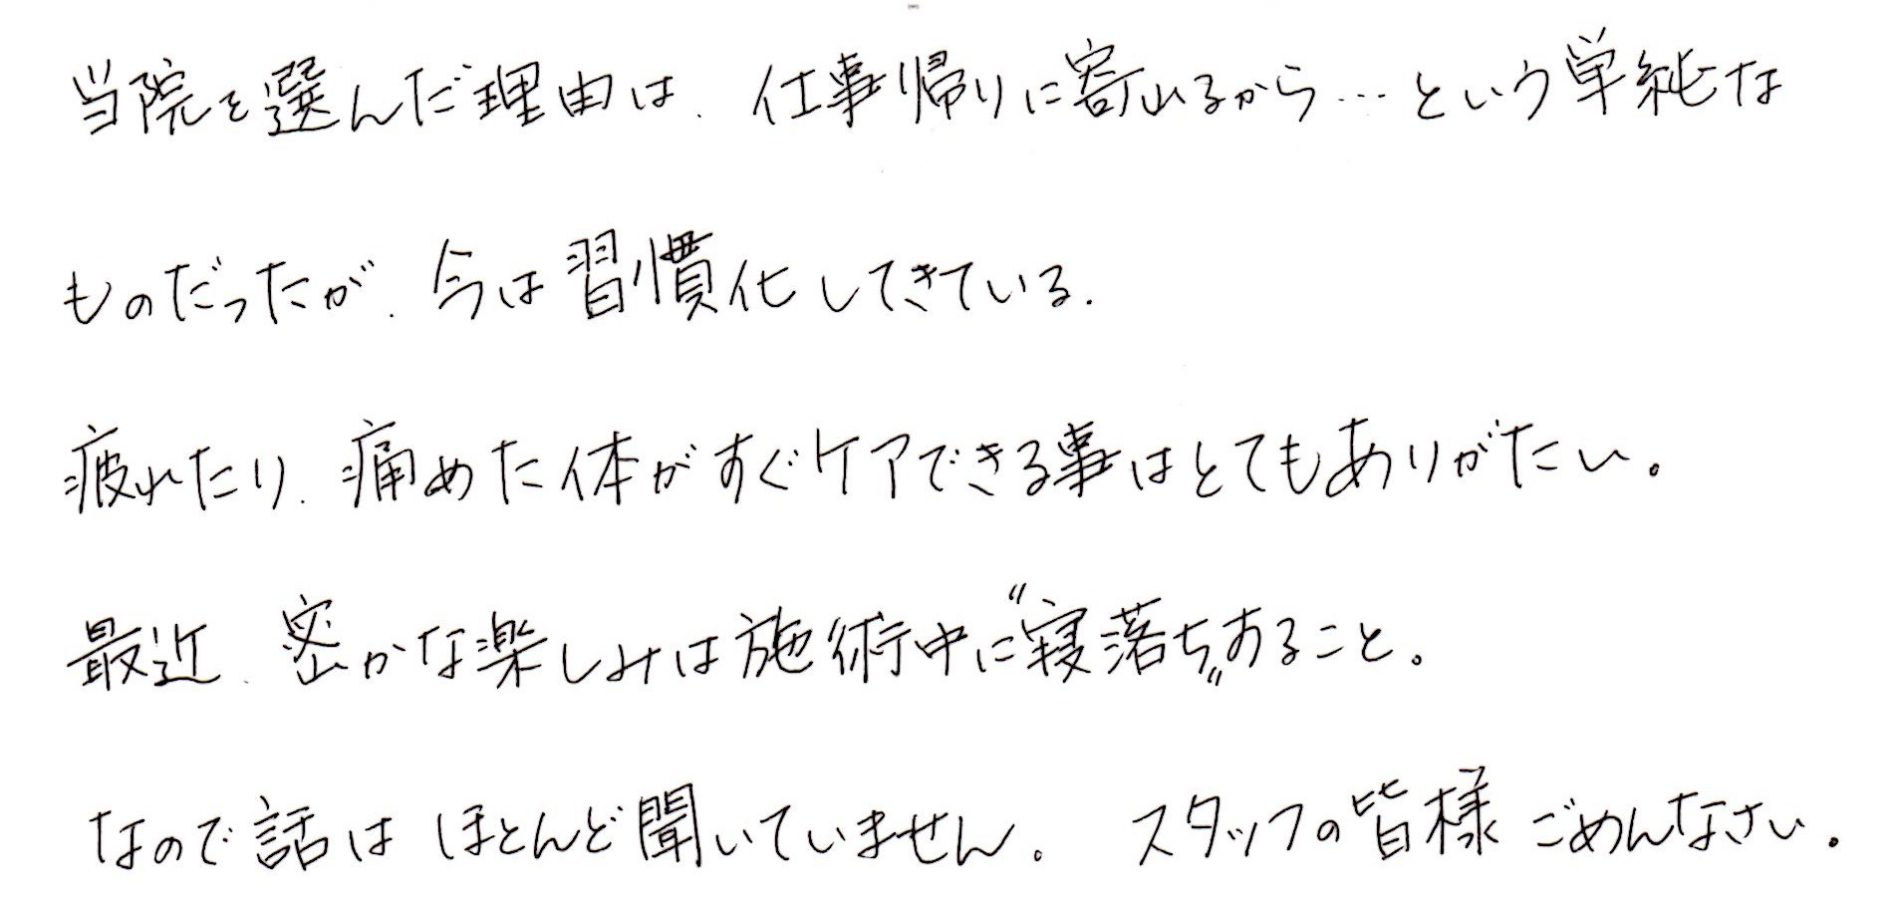 当院を選んだ理由は、仕事帰りに寄れるから…という単純な
ものだったが、今は習慣化してきている.
疲れたり、痛めた体がすぐケアできる事はとてもありがたい。
最近、密かな楽しみは施術中に〝寝落ち〟すること。
なので話は ほとんど聞いていません。 スタッフの皆様 ごめんなさい。